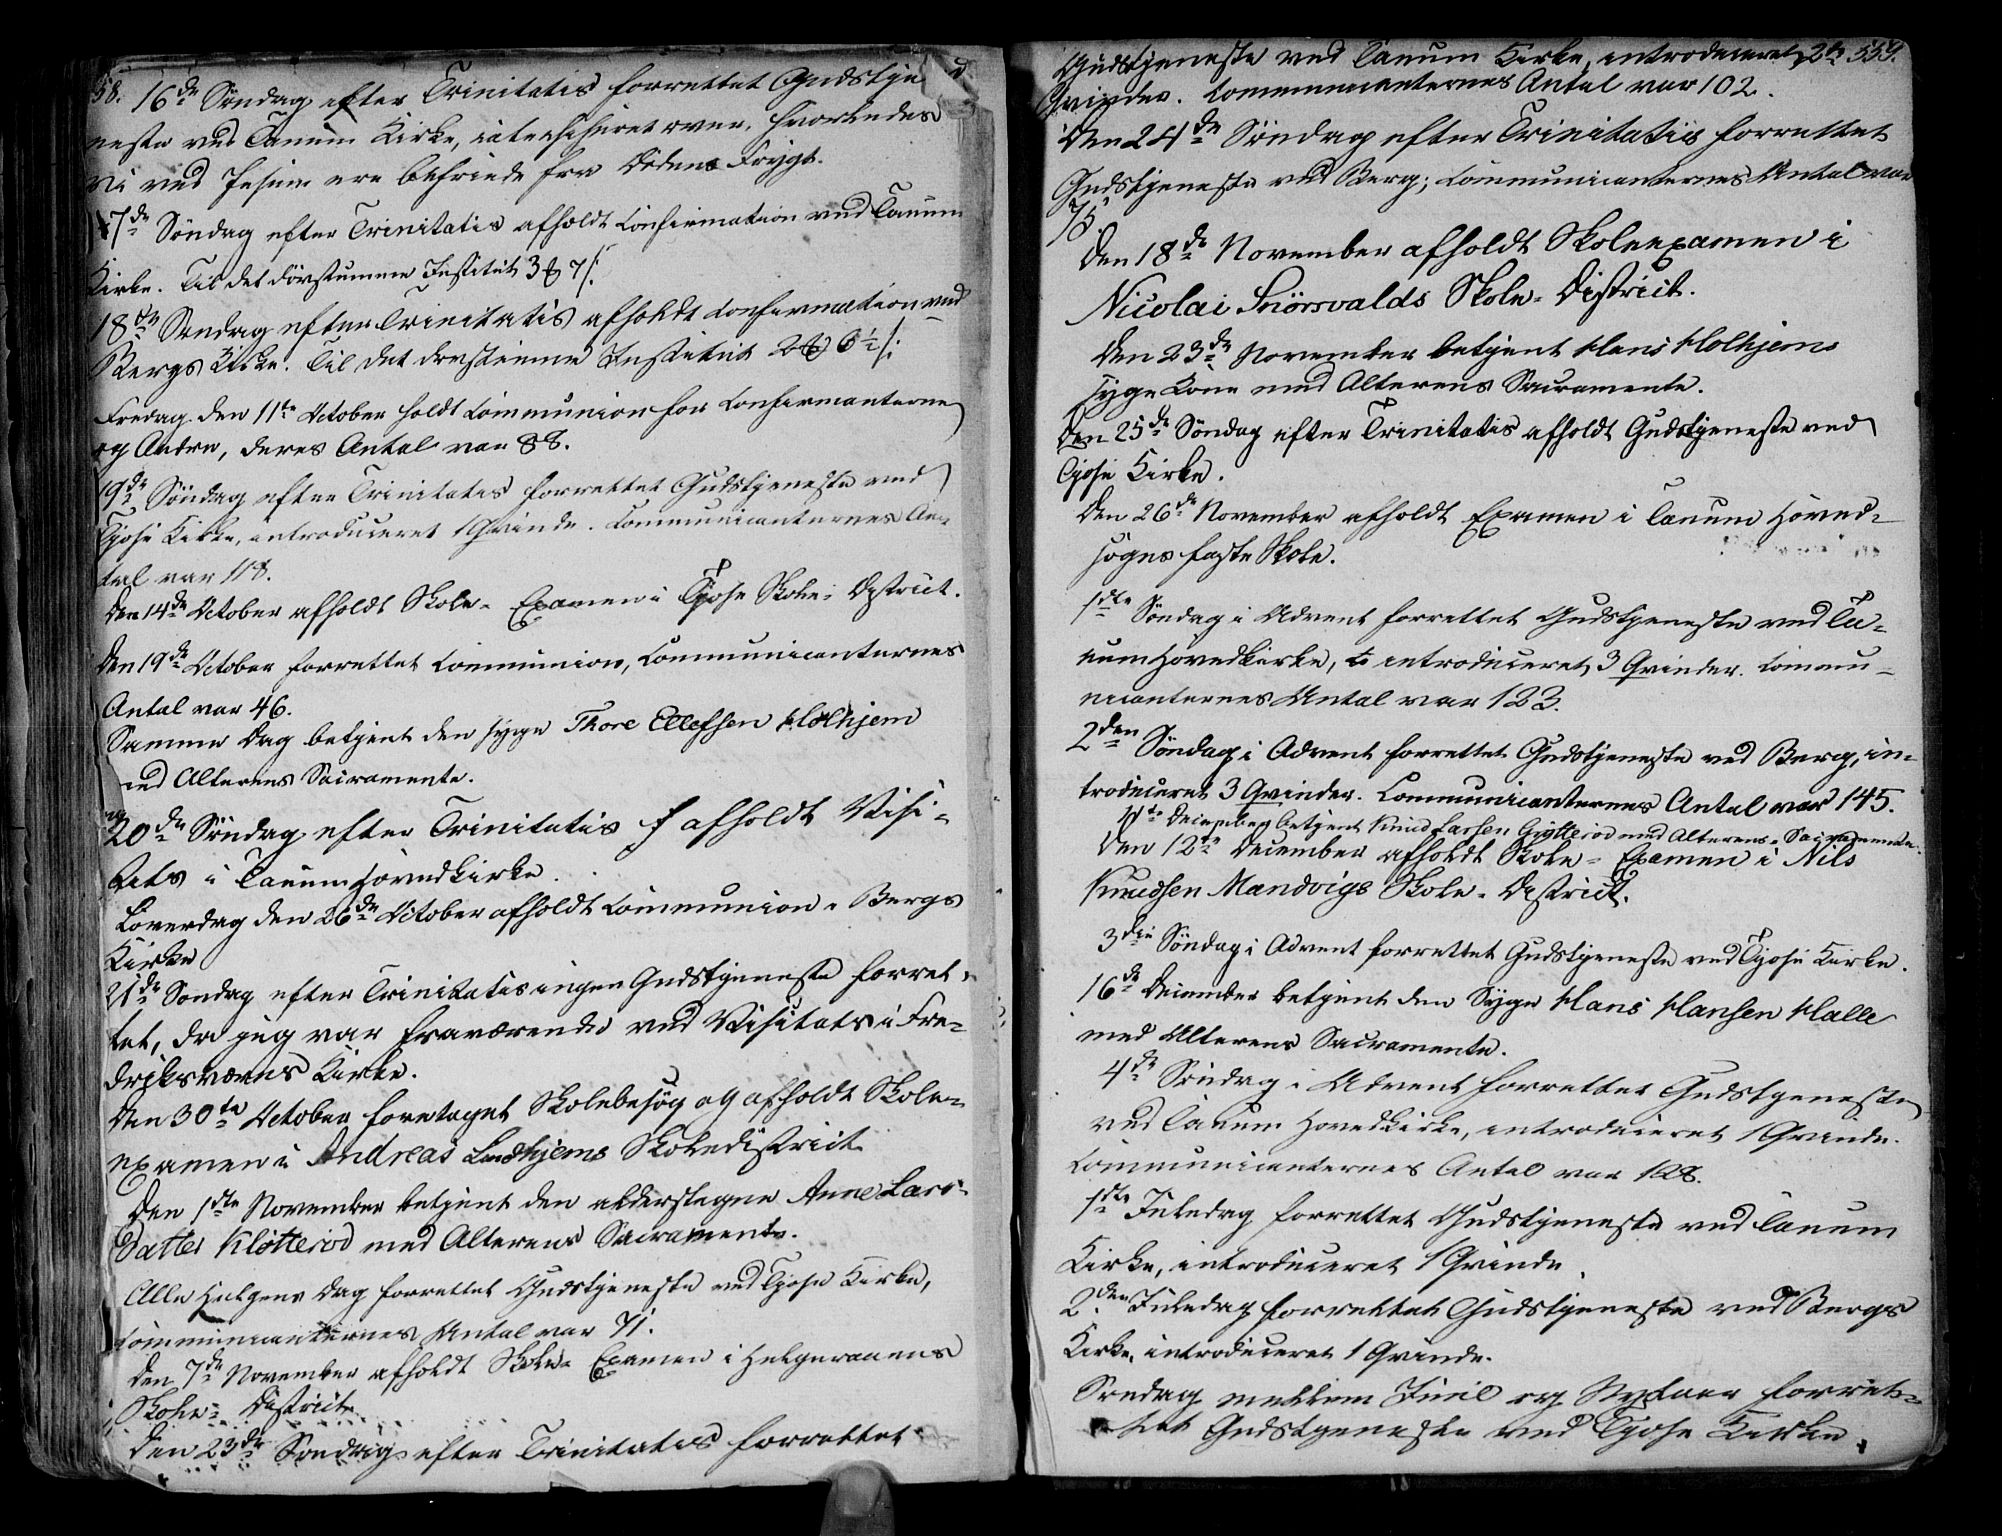 58. 16de Søndag efter Trinitatis forrettet Gudstje
neste ved Tanum Kirke, catechiseret over, hvorledes
vi ved Jesum ere befriede fra Dødens Frygt.
17de Søndag efter Trinitatis afholdt Confirmation ved Tanum
Kirke. Til det døvstumme Institut 3 7/:
18de Søndag efter Trinitatis afholdt Confirmation ved
Bergs Kirke. Til det døvstumme Institut 2 6½/:
Fredag den 11te October holdt Communion for Confirmanterne
og Andre, deres Antal var 88.
19de Søndag efter Trinitatis forrettet Gudstjeneste ved
Tjose Kirke, introduceret 1 Qvinde. Communicanternes An-
tal var 118.
Den 14de October afholdt Skole-Examen i Tjose Skole-District.
Den 19de October forrettet Communion, Communicanternes
Antal var 46.
Samme Dag betjent den syge Thore Ellefsen Holhjem
med Alterens Sacramente.
20de Søndag efter Trinitatis afholdt Visi-
tats i Tanum Hovedkirke.
Løverdag den 26de October afholdt Communion i Bergs
Kirke
21de Søndag efter Trinitatis ingen Gudstjeneste forret-
tet, da jeg var fraværende ved Visitats i Fre-
driksværns Kirke.
Den 30te October foretaget Skolebesøg og afholdt Skole-
examen i Andreas Lundhjems Skoledistrict
Den 1ste November betjent den alderstegne Anne Lars-
datter Kløtterød med Alterens Sacramente.
Alle Helgens Dag forrettet Gudstjeneste ved Tjose Kirke,
Communicanternes Antal var 71.
Den 7de November afholdt Skole-Examen i Helgeraaens
Skole-District
Den 23de Søndag efter Trinitatis forrettet
Gudstjeneste ved Tanum Kirke, introduceret 2de 559.
Qvinder. Communicanternes Antal var 102.
Den 24de Søndag efter Trinitatis forrettet
Gudstjeneste ved Berg; Communicanternes Antal var
75.
Den 18de November afholdt Skoleexamen i
Nicolai Snørsvalds Skole-District.
Den 23de November betjent Hans Holhjems
syge Kone med Alterens Sacramente.
Den 25de Søndag efter Trinitatis afholdt Gudstjeneste ved
Tjose Kirke.
Den 26de November afholdt Examen i Tanum Hoved-
sogns faste Skole.
1ste Søndag i Advent forrettet Gudstjeneste ved Ta-
num Hovedkirke, introduceret 3 Qvinder. Commu-
nicanternes Antal var 123.
2den Søndag i Advent forrettet Gudstjeneste ved Berg, in-
troduceret 3 Qvinder. Communicanternes Antal var 145.
11te December betjent Knud Larsen Grøtterød med Alterens Sacramente.
Den 12te December afholdt Skole-Examen i Nils
Knudsen Mandvigs Skole-District.
3die Søndag i Advent forrettet Gudstjeneste ved Tjose Kirke.
16de December betjent den Syge Hans Hansen Halle
med Alterens Sacramente.
4de Søndag i Advent forrettet Gudstjeneste
ved Tanum Hovedkirke, introduceret 1 Qvinde.
Communicanternes Antal var 128.
1ste Juledag forrettet Gudstjeneste ved Tanum
Kirke, introduceret 1 Qvinde
2den Juledag forrettet Gudstjeneste ved Bergs
Kirke, introduceret 1 Qvinde.
Søndag mellem Juul og Nytaar forret-
tet Gudstjeneste ved Tjose Kirke.